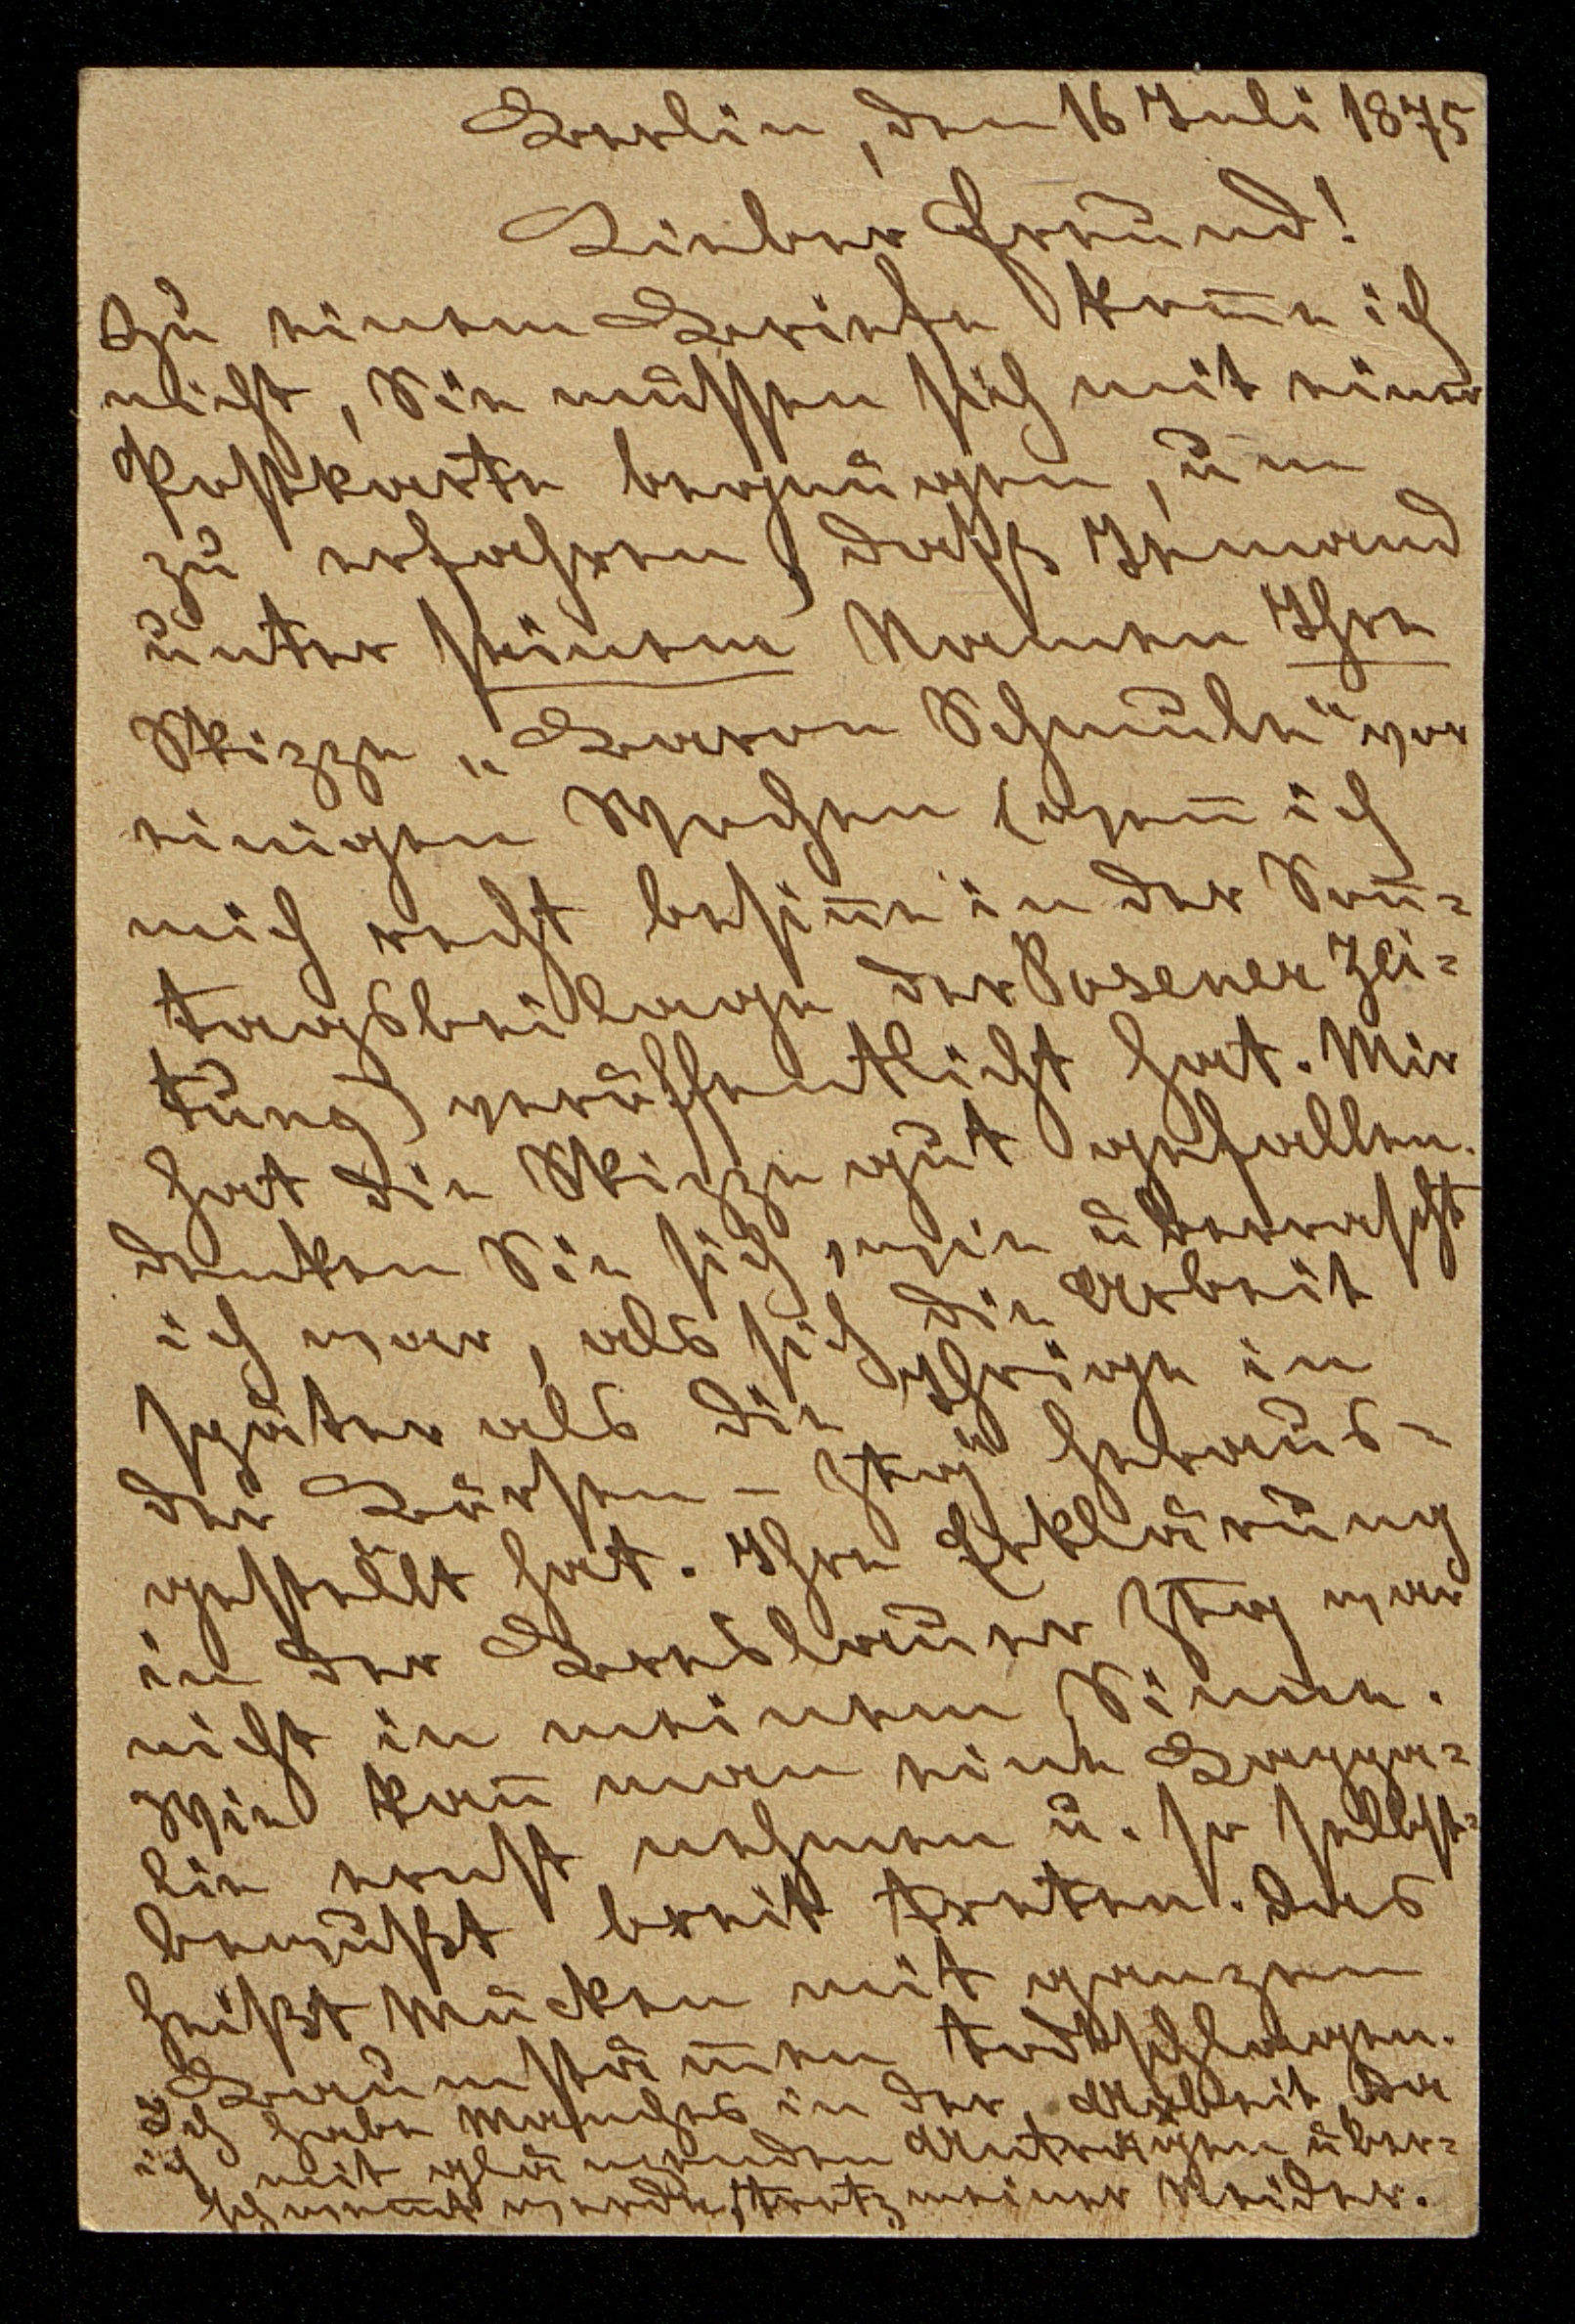 Berlin, den 16 Juli 1875
Lieber Freund!
Zu einem Briefe kom̅e ich
nicht, Sie müssen sich mit einer
Postkarte begnügen, um
zu erfahren, daß Jemand
unter seinem Namen Ihre
Skizze „Baron Schmule“ vor
einigen Wochen (wen̅ ich
mich recht besin̅e in der Son̅-
tagsbeilage der Posener Zei-
tung) veröffentlicht hat. Mir
hat die Skizze gut gefallen.
Denken Sie sich, wie überrascht
ich war, als sich die Arbeit
später als die Ihrige in
der Börsen-Ztg heraus-
gestellt hat. Ihre Erklärung
in der Breslauer Ztg war
nicht in meinem Sinne.
Wie kan̅ man eine Bagga-
lie ernst nehmen u. so selbst-
bewußt breit treten. Das
heißt Mücken mit ganzen
Baumstäm̅en todtschlagen.
Ich habe Manches in der Arbeit, da
ich mit glänzenden Anträgen über-
schwem̅t werde, trotz meiner Neider.